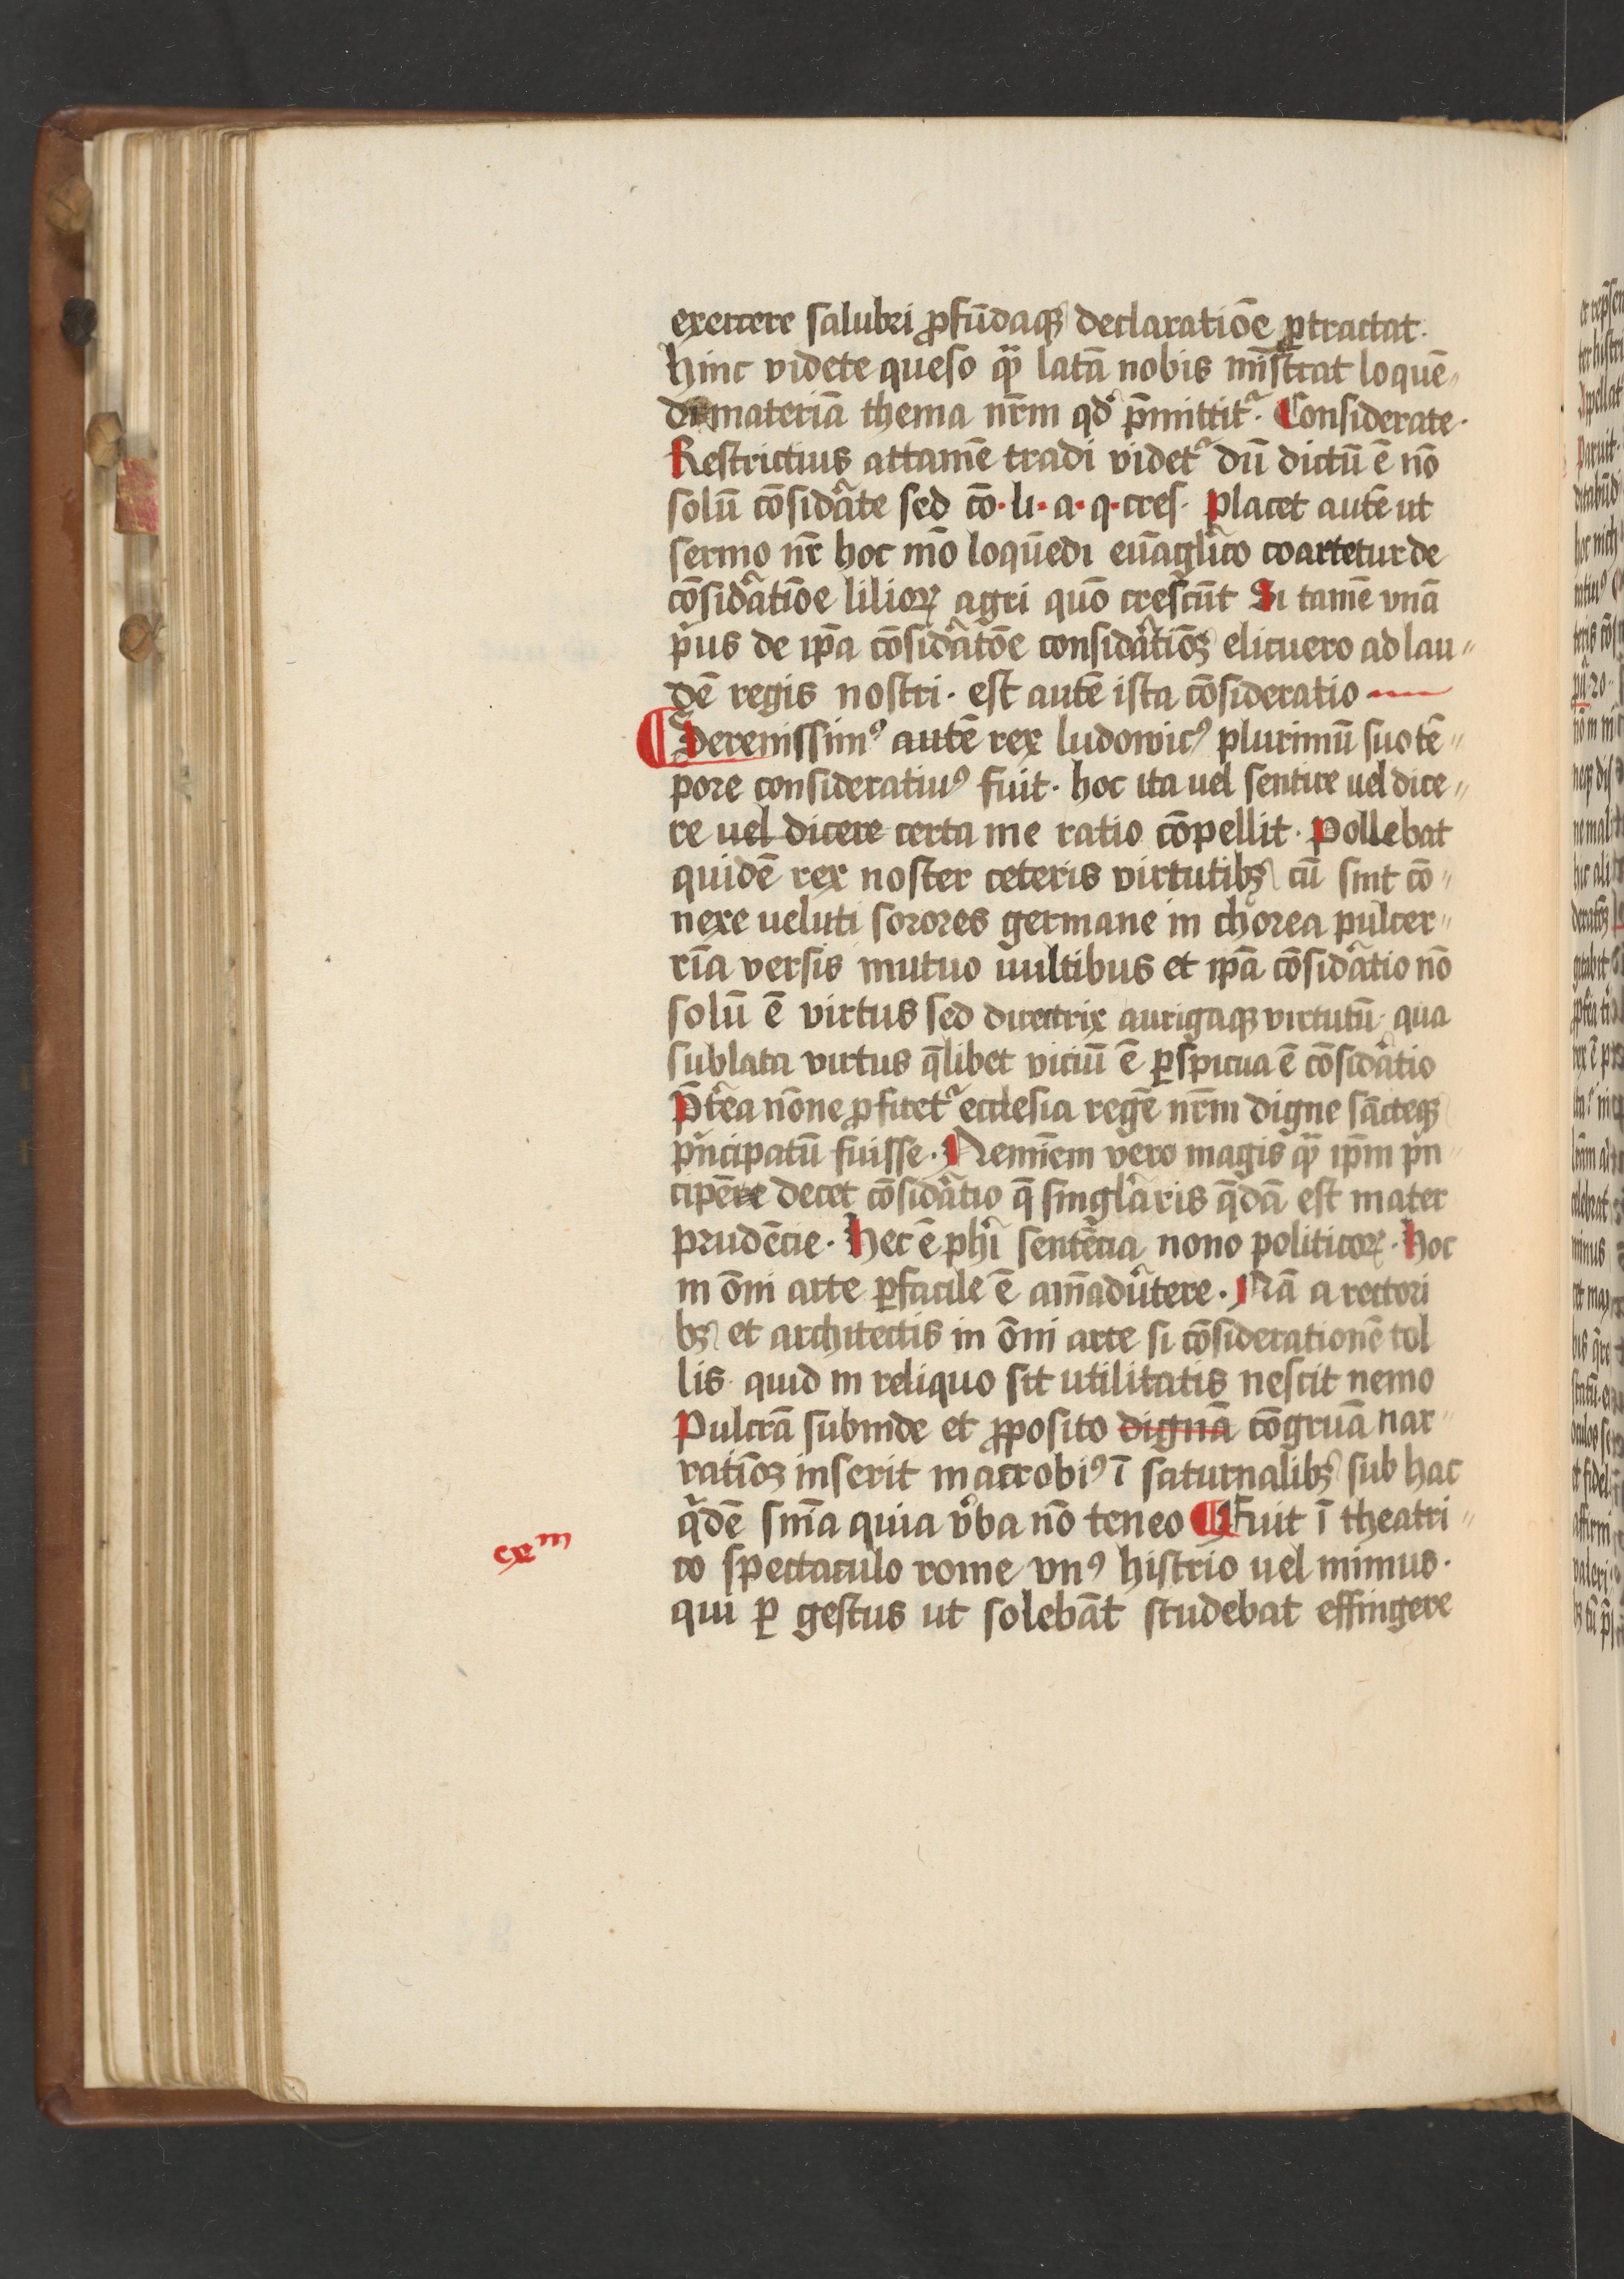 exercere salubri ꝓfūdaqꝫ declaratiōe ꝑtractat.
Hinc videte queso qͣ̄ latā nobis mīstrat loquē〃
di materiā thema nr̄m qd̾ p̄mittit᷑. Considerate.
Restrictius attamē tradi videt᷑ dū dictū ē nō
solū cōsid̾āte sed cō· li· a· q· cres· Placet autē ut
sermo nr̄ hoc mō loquēdi euāgl̾ico coartetur de
cōsid̾ātiōe lilioꝝ agri quō crescūt Si tamē vnā
p̾us de ip̄a cōsid̾ātōe consid̾ātiōꝫ elicuero ad lau〃
dē regis nostri· est autē ista cōsideratio
¶ Serenissimꝰ autē rex ludowicꝰ plurimū suo tē〃
pore consideratiuꝰ fuit· hoc ita uel sentire uel dice〃
re uel dicere certa me ratio cōpellit· Pollebat
quidē rex noster ceteris virtutibꝫ cū sint cō〃
nexe ueluti sorores germane in chorea pulcer〃
rīa versis mutuo uultibus et ip̄a cōsid̾ātio nō
solū ē virtus sed directrix aurigaqꝫ virtutū· qua
sublata virtus q̄libet viciū ē ꝑspicua ē cōsid̾ātio
P̄t̾ea nōne ꝓfitet᷑ ecclesia regē nr̄m digne sācteqꝫ
p̾ncipatū fuisse· Neminem vero magis qͣ̄ ip̄m p̾n〃
cipēre decet cōsid̾ātio q̄ singl̾aris q̄dā est mater
prudēcie· Hec ē ph̾i sentēcia nono politicoꝝ· Hoc
in ōni arte ꝑfacile ē aīaduͤtere· Nā a rectori
bꝫ et architectis in ōni arte si cōsiderationē tol
lis· quid in reliquo sit utilitatis nescit nemo
Pulcrā subinde et ꝓposito dignā cōgruā nar〃
ratiōꝫ inserit macrobiꝰ ī saturnalibꝫ sub hac
q̾dē sn̄ia quia v̾ba nō teneo ¶ Fuit ī theatri〃
co spectaculo rome vnꝰ histrio uel mimus·
qui ꝑ gestus ut solebāt studebat effingere
exᵐ